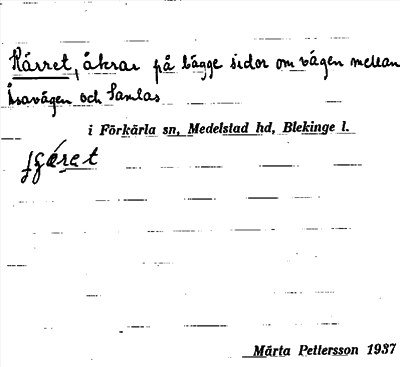 Kärret, åkrar på bägge sidor om vägen mellan
Åsavägen och Samlas
i Förkärla sn, Medelstad hd, Blekinge l.
Märta Pettersson 1937